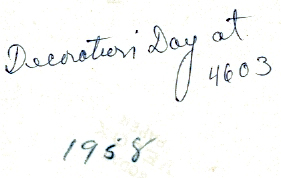 Decoration Day at
4603
1958